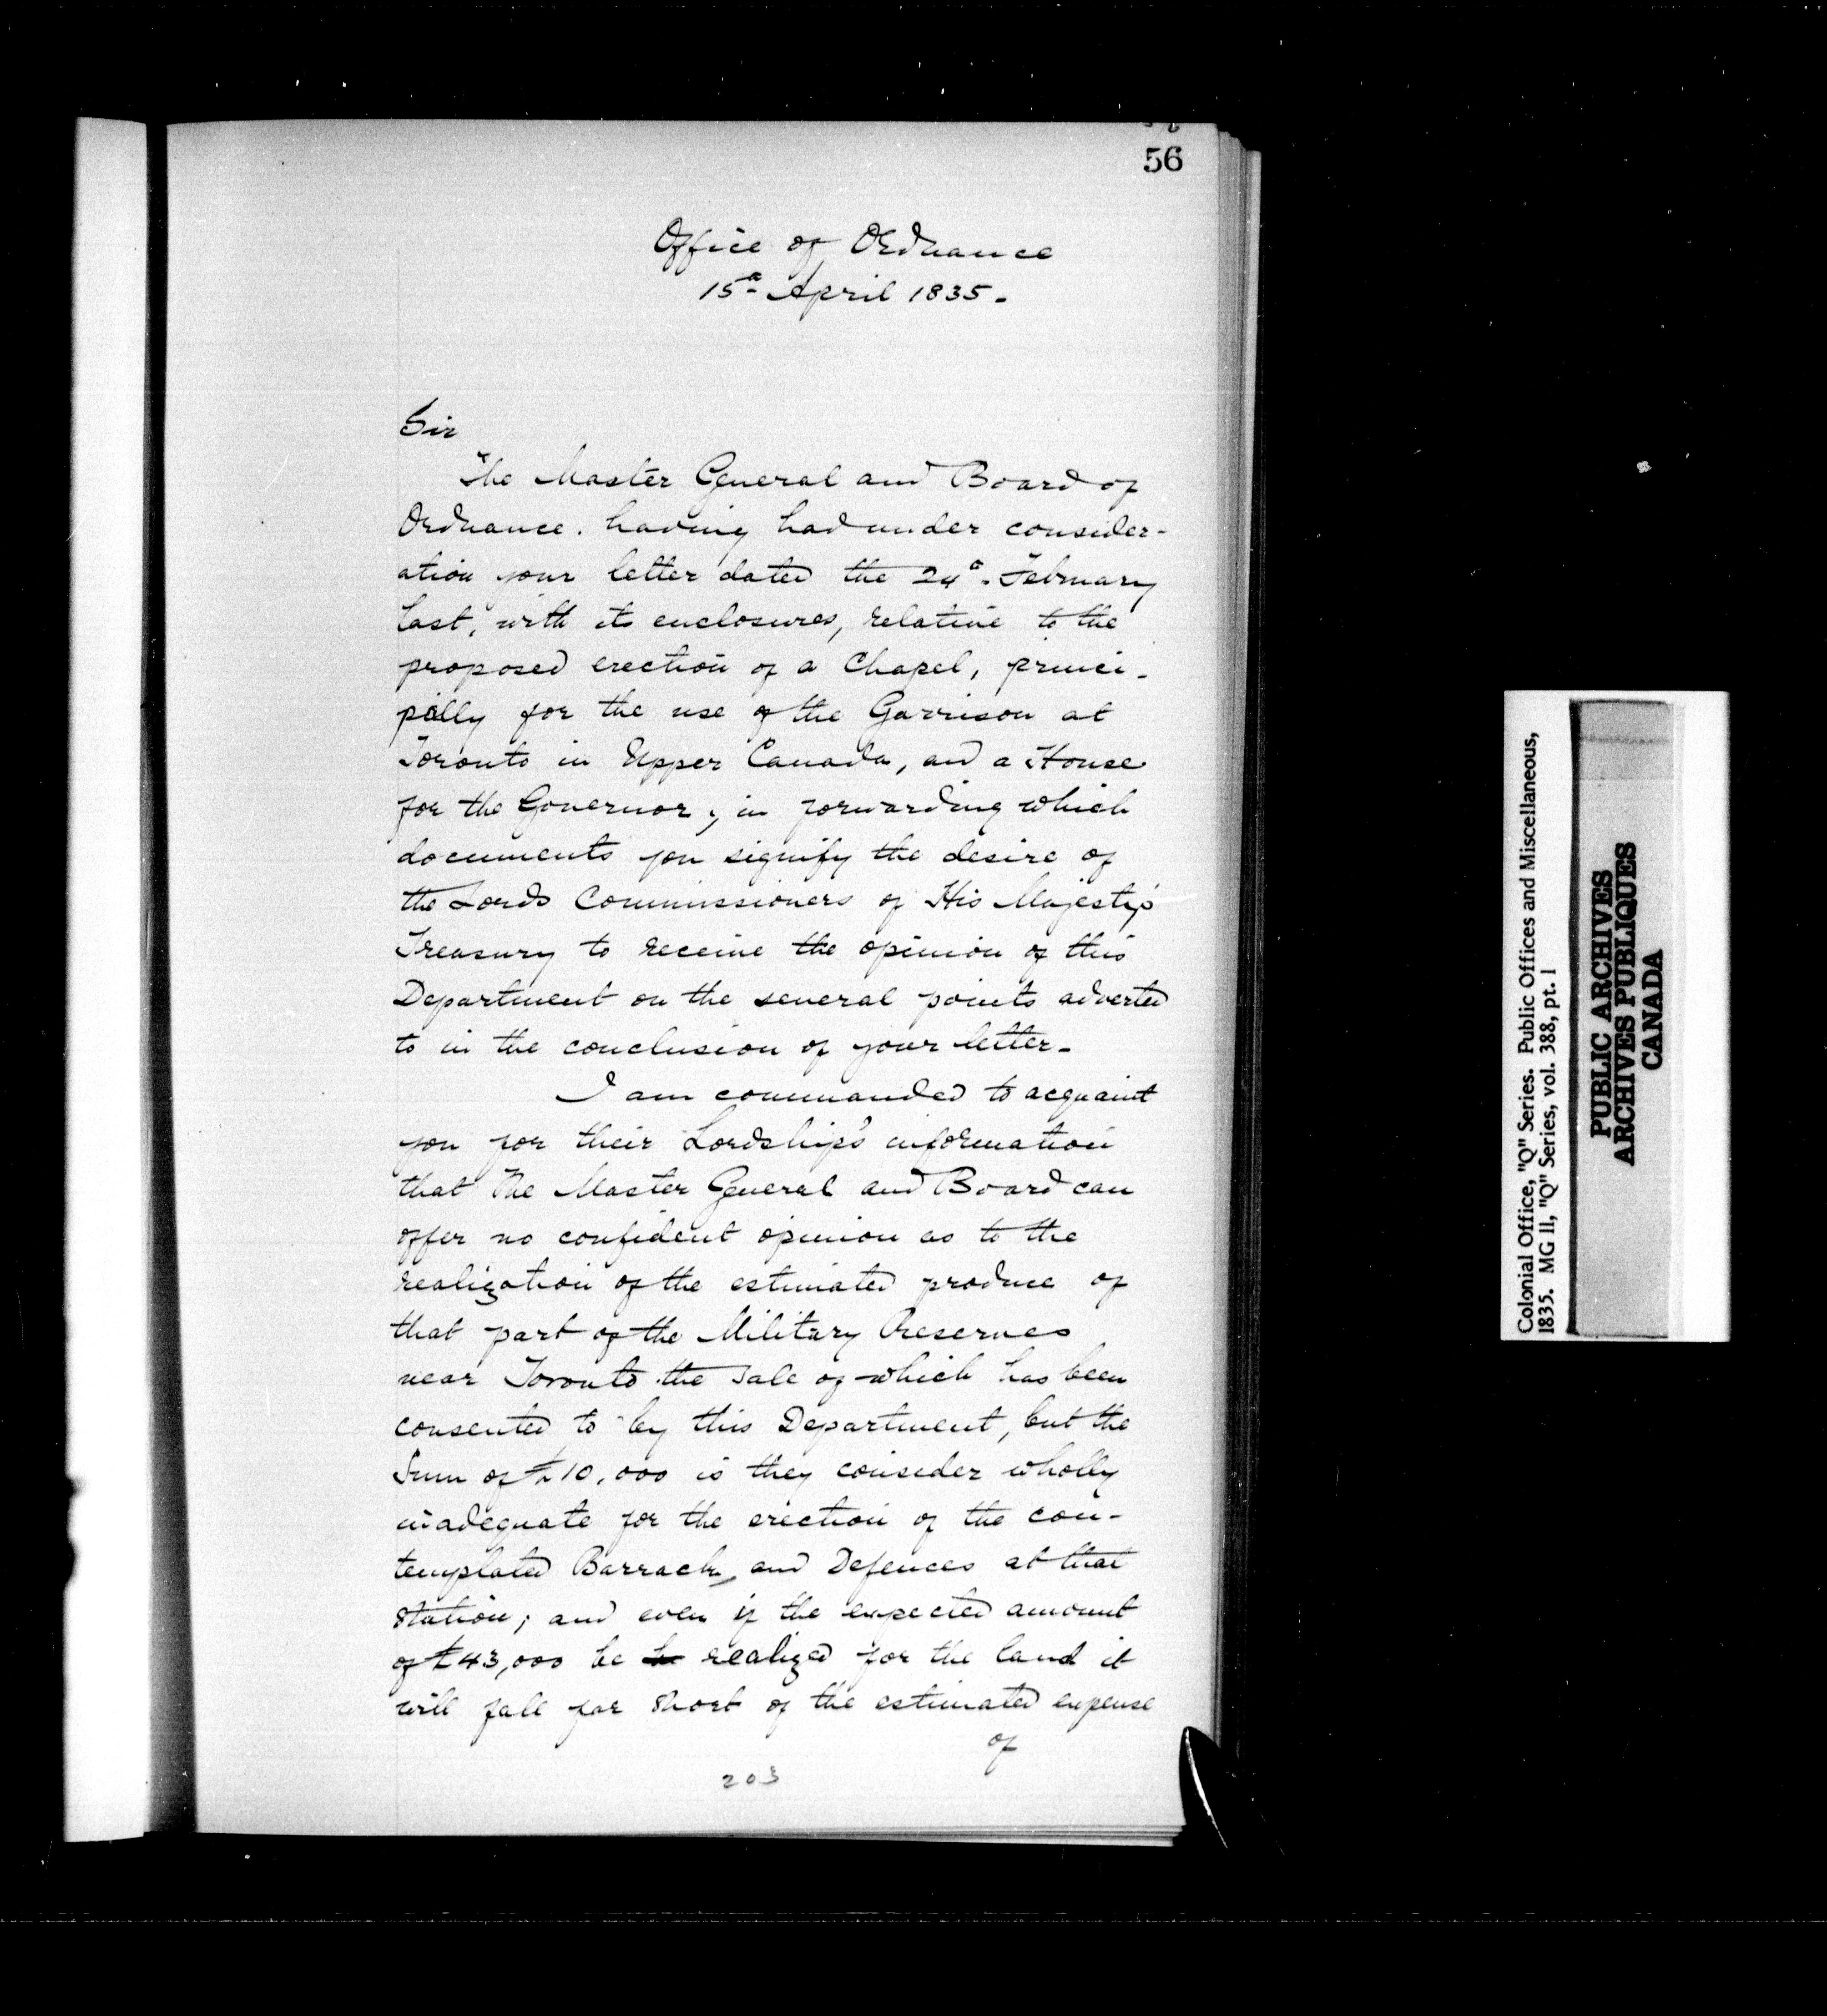 56
Office of Ordnance
15th April 1835.
Sir
The Master General and Board of
Ordnance. having had under consider-
ation your letter dated the 24th. February
last, with its enclosures, relative to the
proposed erection of a Chapel, princi-
pally for the use of the Garrison at
Toronto in Upper Canada, and a House
for the Governor; in forwarding which
documents you signify the desire of
the Lords Commissioners of His Majesty's
Treasury to receive the opinion of this
Department on the several points adverted
to in the conclusion of your letter-
I am commanded to acquaint
you for their Lordship's information
that the Master General and Board can
offer no confident opinion as to the
realization of the estimated produce of
that part of the Military Reserves
near Toronto the sale of which has been
consented to by this Department, but the
Sum of £10,000 is they consider wholly
inadequate for the erection of the con-
templated Barracks, and Defences at that
Station; and even if the expected amount
of £43,000 be realized for the land it
will fall far short of the estimated expense
of
203
Colonial Office, "Q" Series. Public Offices and Miscellaneous,
1835. MG 11, "Q" Series, vol. 388, pt. 1
PUBLIC ARCHIVES
ARCHIVES PUBLIQUES
CANADA